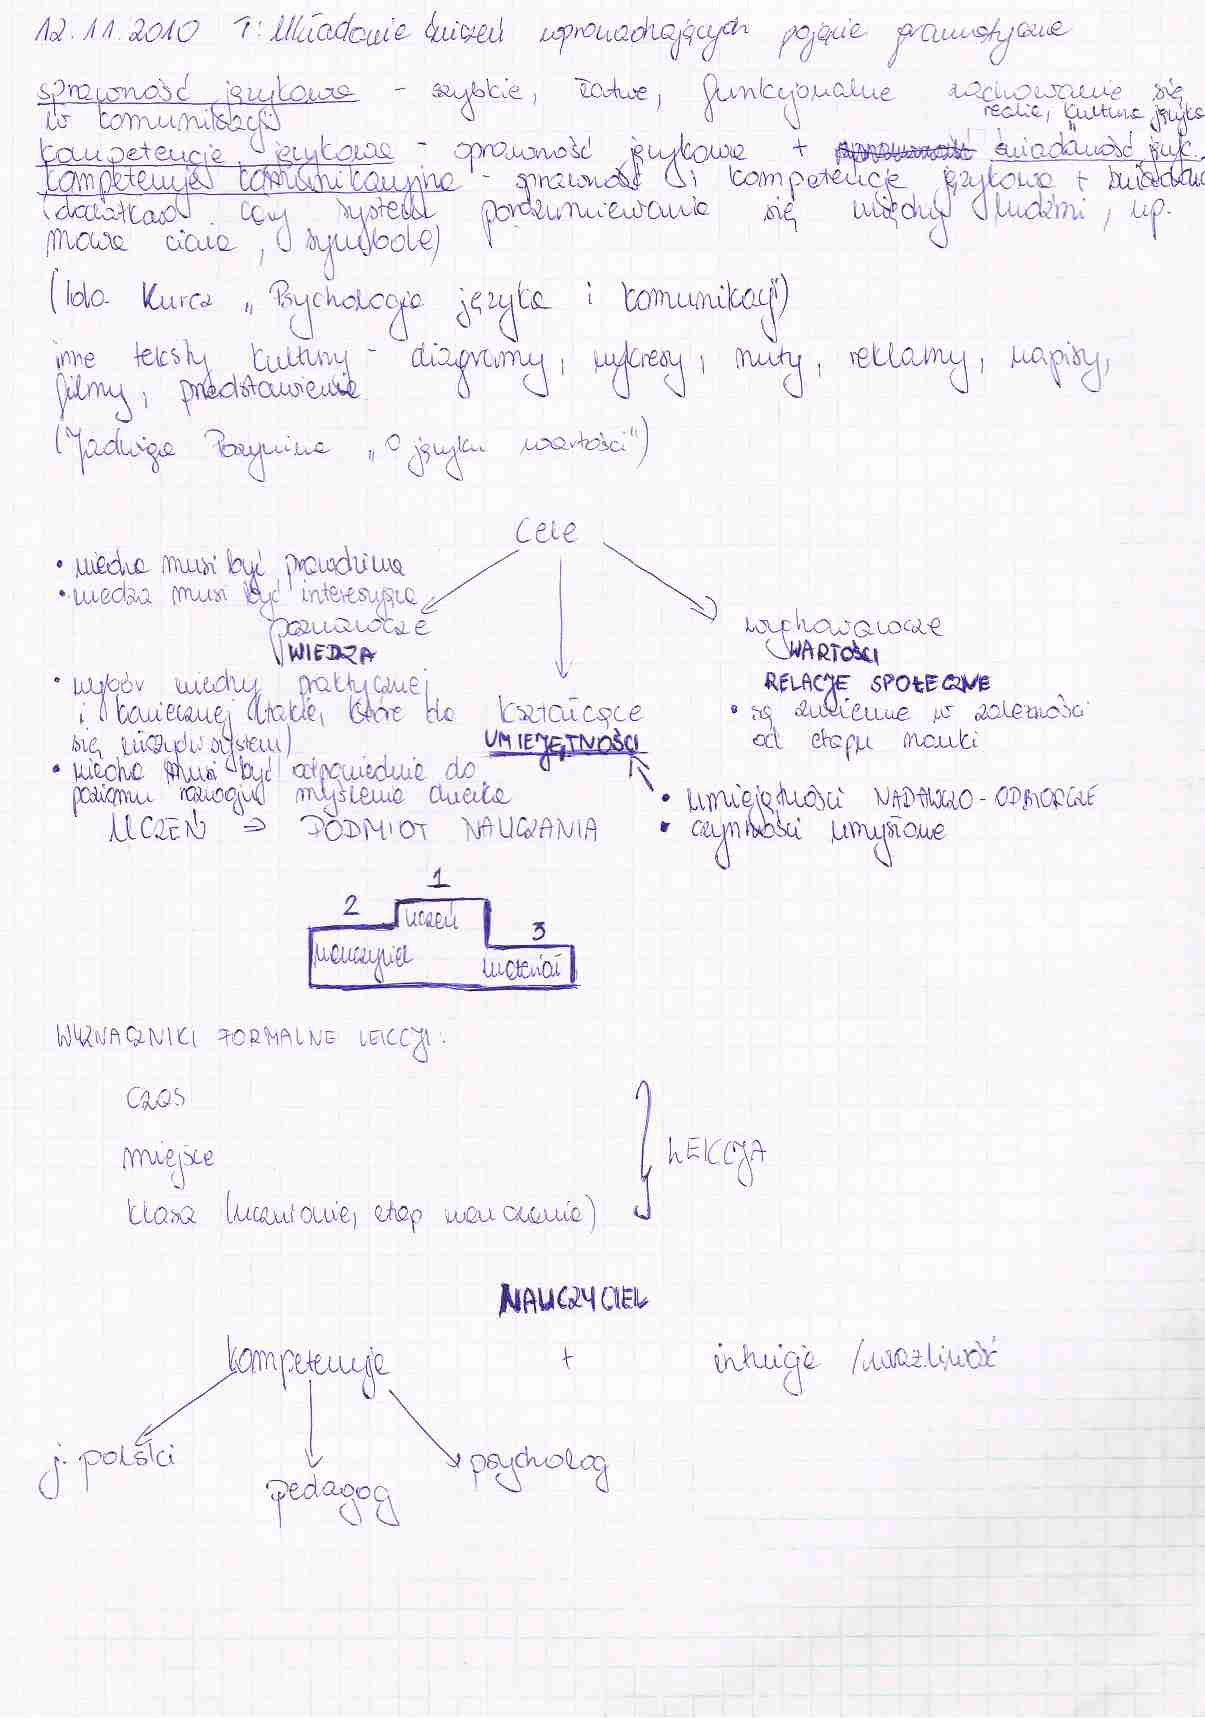 12.11.2010 T: Układanie ćwiczeń wprowadzających pojęcie gramatyczne
sprawność językowa - szybkie, łatwe, funkcjonalne zachowanie się
w komunikacji
realia, kultura języka
kompetencje językowe - sprawność językowa + świadomość język.
kompetencje komunikacyjne - sprawność i kompetencje językowe +
(dodatkowo cały system porozumiewania się między ludźmi, np.
mowa ciała, symbole)
(Ida Kurcz „Psychologia języka i komunikacji")
inne teksty kultury - diagramy, wykresy, nuty, reklamy, napisy,
filmy, przedstawienie
(Jadwiga Puzynina „O języku wartości")
Cele
• wiedza musi być prawdziwa
• wiedza musi być interesująca
poznawcze
WIEDZA
• wybór wiedzy praktycznej
i koniecznej (takie, które da
się ująć w system)
• wiedza musi być odpowiednia do
poziomu rozwoju myślenia dziecka
kształcące
UMIEJĘTNOŚCI
• umiejętności NADAWCZO-ODBIORCZE
• czynności umysłowe
wychowawcze
WARTOŚCI
RELACJE SPOŁECZNE
• są zmienne w zależności
od etapu nauki
UCZEŃ ⇒ PODMIOT NAUCZANIA
1
2
3
uczeń
nauczyciel
materiał
WYZNACZNIKI FORMALNE LEKCJI:
czas
miejsce
klasa (uczniowie, etap nauczania)
LEKCJA
NAUCZYCIEL
kompetencje + intuicja / wrażliwość
j. polski
pedagog
psycholog